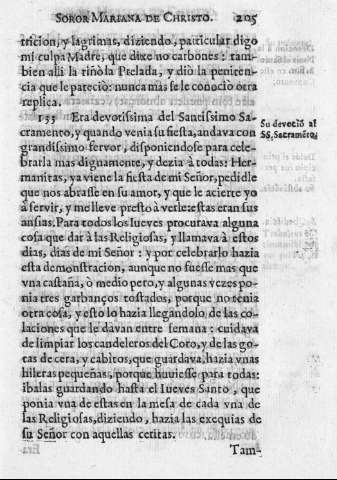 SOROR MARIANA DE CHRISTO. 205
tricion, y lagrimas, diziendo, particular digo
mi culpa Madre, que dixe no carbones: tam-
bien alli la riñò la Prelada, y diò la peniten-
cia que le pareciò: nunca mas se le conociò otra
replica.
155 Era devotissima del Santissimo Sa-
cramento, y quando venia su fiesta, andava con
grandissimo fervor, disponiendose para cele-
brarla mas dignamente, y dezia à todas: Her-
manitas, ya viene la fiesta de mi Señor, pedidle
que nos abrase en su amor, y que le acierte yo
à servir, y me lleve presto à verle: estas eran sus
ansias. Para todos los Iueves procurava alguna
cosa que dar à las Religiosas, y llamava à estos
dias, dias de mi Señor: y por celebrarlo hazia
esta demonstracion, aunque no fuesse mas que
vna castaña, ò medio pero, y algunas vezes po-
nia tres garbanços tostados, porque no tenia
otra cosa, y esto lo hazia llegandolo de las co-
laciones que le davan entre semana: cuidava
de limpiar los candeleros del Coro, y de las go-
tas de cera, y cabitos, que guardava, hazia vnas
hileras pequeñas, porque huviesse para todas:
ibalas guardando hasta el Iueves Santo, que
ponia vna de estas en la mesa de cada vna de
las Religiosas, diziendo, hazia las exequias de
su Señor con aquellas ceritas.
Tam-
Su devociõ al
SS. Sacramẽto.